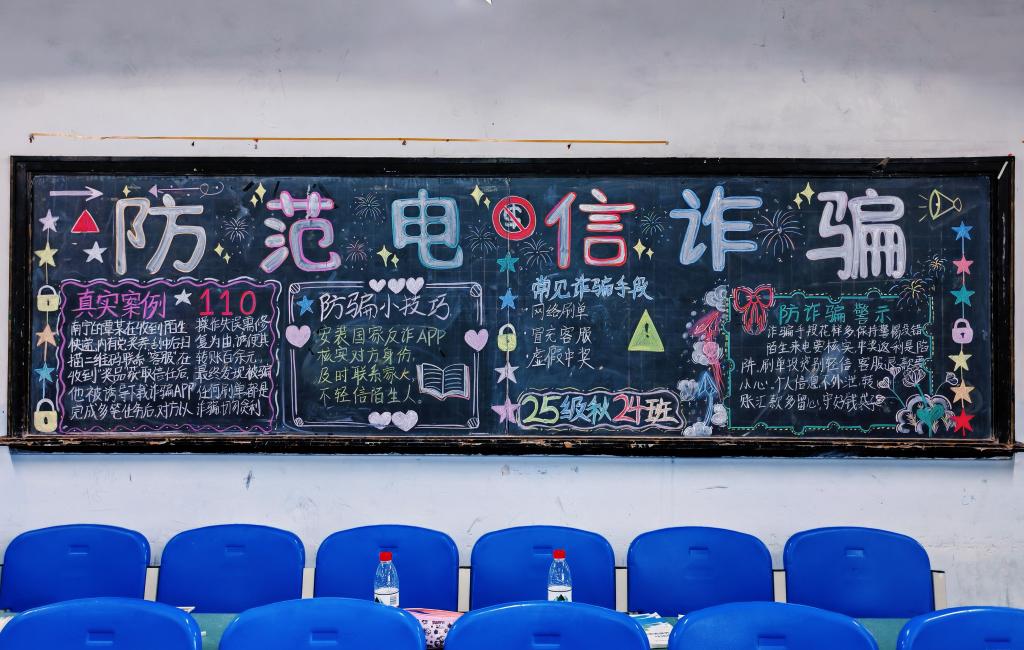 防范电信诈骗
真实案例 110
南宁的覃某在收到陌生
快递,内有完美券到中后扫
描二维码联系"客服"在
收到"奖品"获取信任后,
他被诱导下载诈骗APP
完成多笔任务后,对方以
操作失误需修
复为由,诱使其
转账百余元,
最终发现被骗
任何刷单都是
诈骗 切勿贪利
防骗小技巧
安装国家反诈APP
核实对方身份,
及时联系家人,
不轻信陌生人。
常见诈骗手段
·网络刷单
·冒充客服
·虚假中奖。
25级秋24班
防诈骗 警示
诈骗手段花样多保持警惕没错
陌生来电要核实,中奖返利是陷
阱,刷单投资别轻信,客服
小心,个人信息不外泄,转
账汇款多留心,守好钱袋